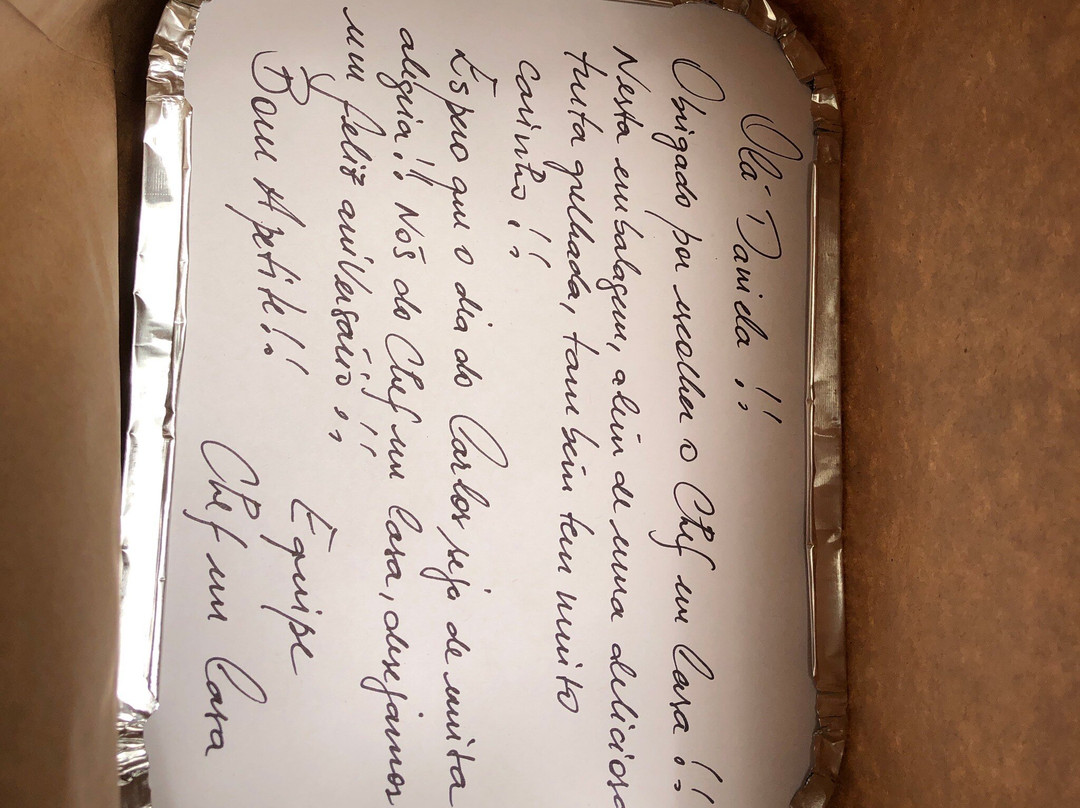 Olá Daniela!!
Obrigado por escolher o Chef em Casa!!
Nesta embalagem, além de uma deliciosa
truta grelhada, também tem muito
carinho!!
Espero que o dia do Carlos seja de muita
alegria!! Nós do Chef em Casa, desejamos
um feliz aniversário!!!
Bom Apetite!!
Equipe
Chef em Casa